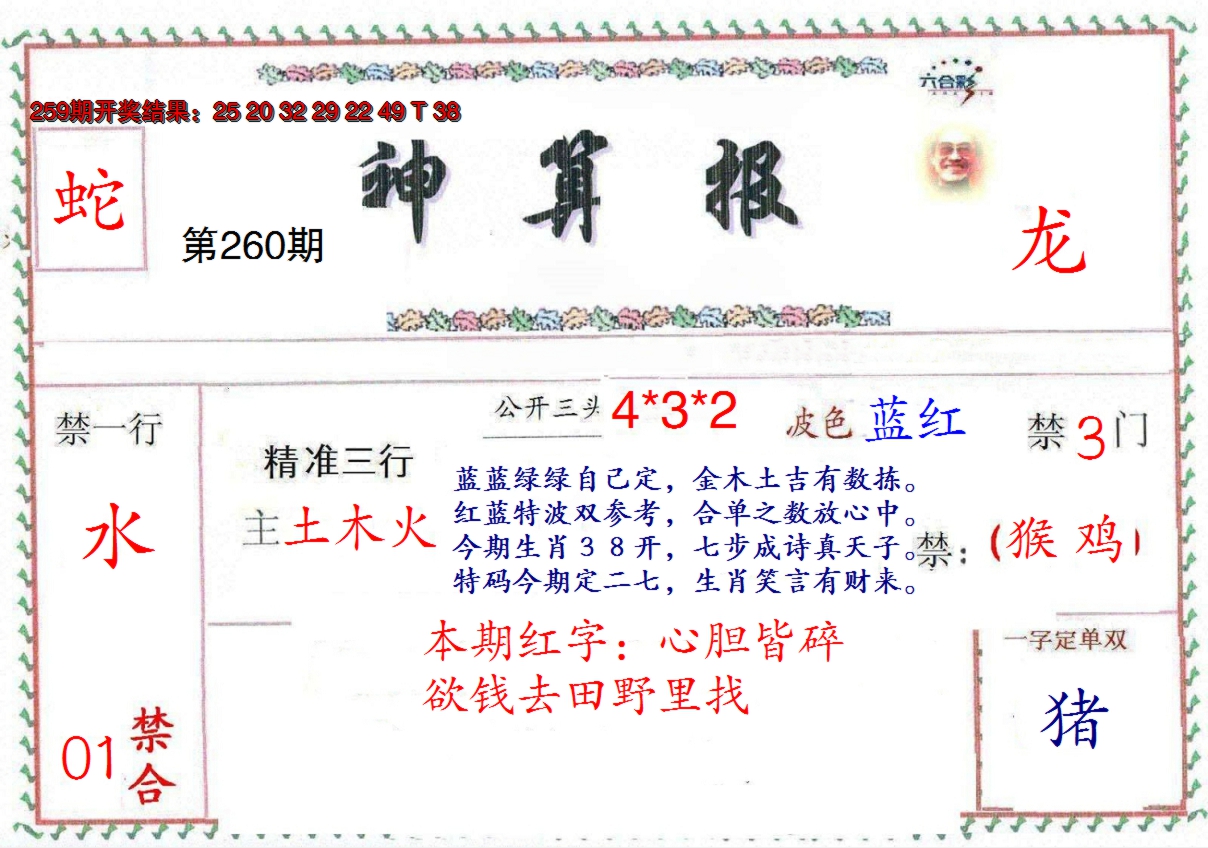 六合彩
259期开奖结果：25 20 32 29 22 49 T 38
神算报
蛇
第260期
龙
禁一行
水
01禁合
公开三头 4*3*2
波色 蓝红
禁3门
精准三行
主土木火
蓝蓝绿绿自己定，金木土吉有数拣。
红蓝特波双参考，合单之数放心中。
今期生肖３８开，七步成诗真天子。
特码今期定二七，生肖笑言有财来。
禁：(猴 鸡)
本期红字：心胆皆碎
欲钱去田野里找
一字定单双
猪